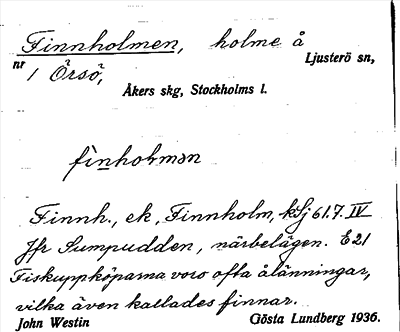 Finnholmen, holme å
Ljusterö sn,
nr 1 Örsö,
Åkers skg, Stockholms l.
finholmən
Finnh., ek, Finnholm, kSj 61.7. IV
Jfr Sumpudden, närbelägen. E21
Fiskuppköparna voro ofta ålänningar,
vilka även kallades finnar.
John Westin Gösta Lundberg 1936.